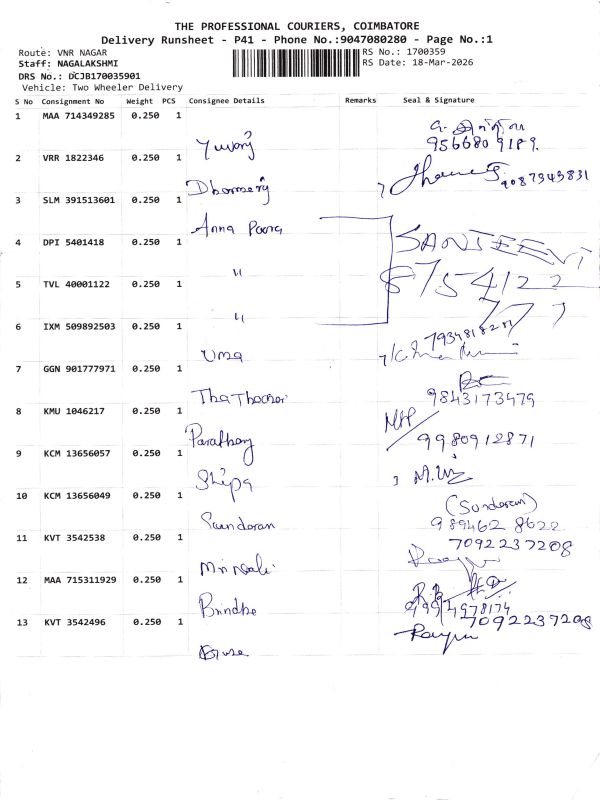 THE PROFESSIONAL COURIERS, COIMBATORE
Delivery Runsheet - P41 - Phone No.:9047080280 - Page No.:1
Route: VNR NAGAR
RS No.: 1700359
Staff: NAGALAKSHMI
RS Date: 18-Mar-2026
DRS No.: DCJB170035901
Vehicle: Two Wheeler Delivery
S No Consignment No Weight PCS Consignee Details Remarks Seal & Signature
1 MAA 714349285 0.250 1
956680 9189
2 VRR 1822346 0.250 1
9087343831
3 SLM 391513601 0.250 1
Anna Poorna
4 DPI 5401418 0.250 1
SANJEEVI
"
5 TVL 40001122 0.250 1
8754122
777
"
6 IXM 509892503 0.250 1
Uma
7 GGN 901777971 0.250 1
9843173479
8 KMU 1046217 0.250 1
9980912871
9 KCM 13656057 0.250 1
Shilpa
10 KCM 13656049 0.250 1
(Sundaram)
Sundaram
989462 8622
11 KVT 3542538 0.250 1
7092237208
12 MAA 715311929 0.250 1
Brindha
9994978174
13 KVT 3542496 0.250 1
7092237208